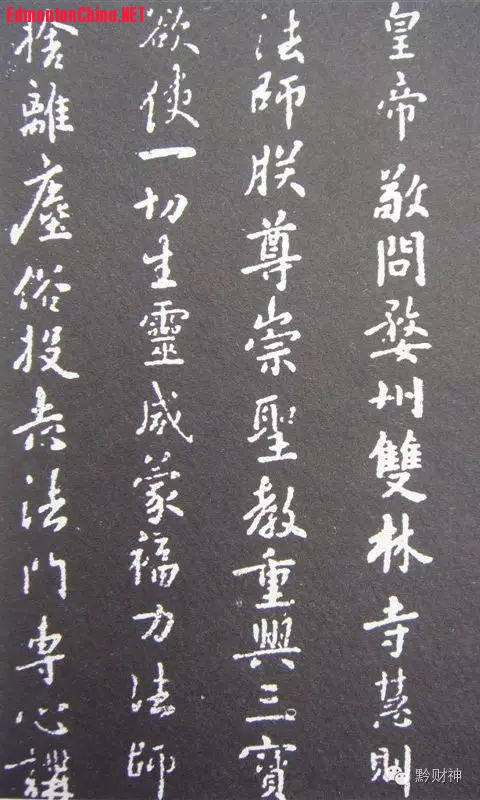 EdmontonChina.NET
皇帝敬問婺州雙林寺慧則
法師朕尊崇聖教重興三寶
欲使一切生靈咸蒙福力法師
捨離塵俗投志法門專心講
黔财神